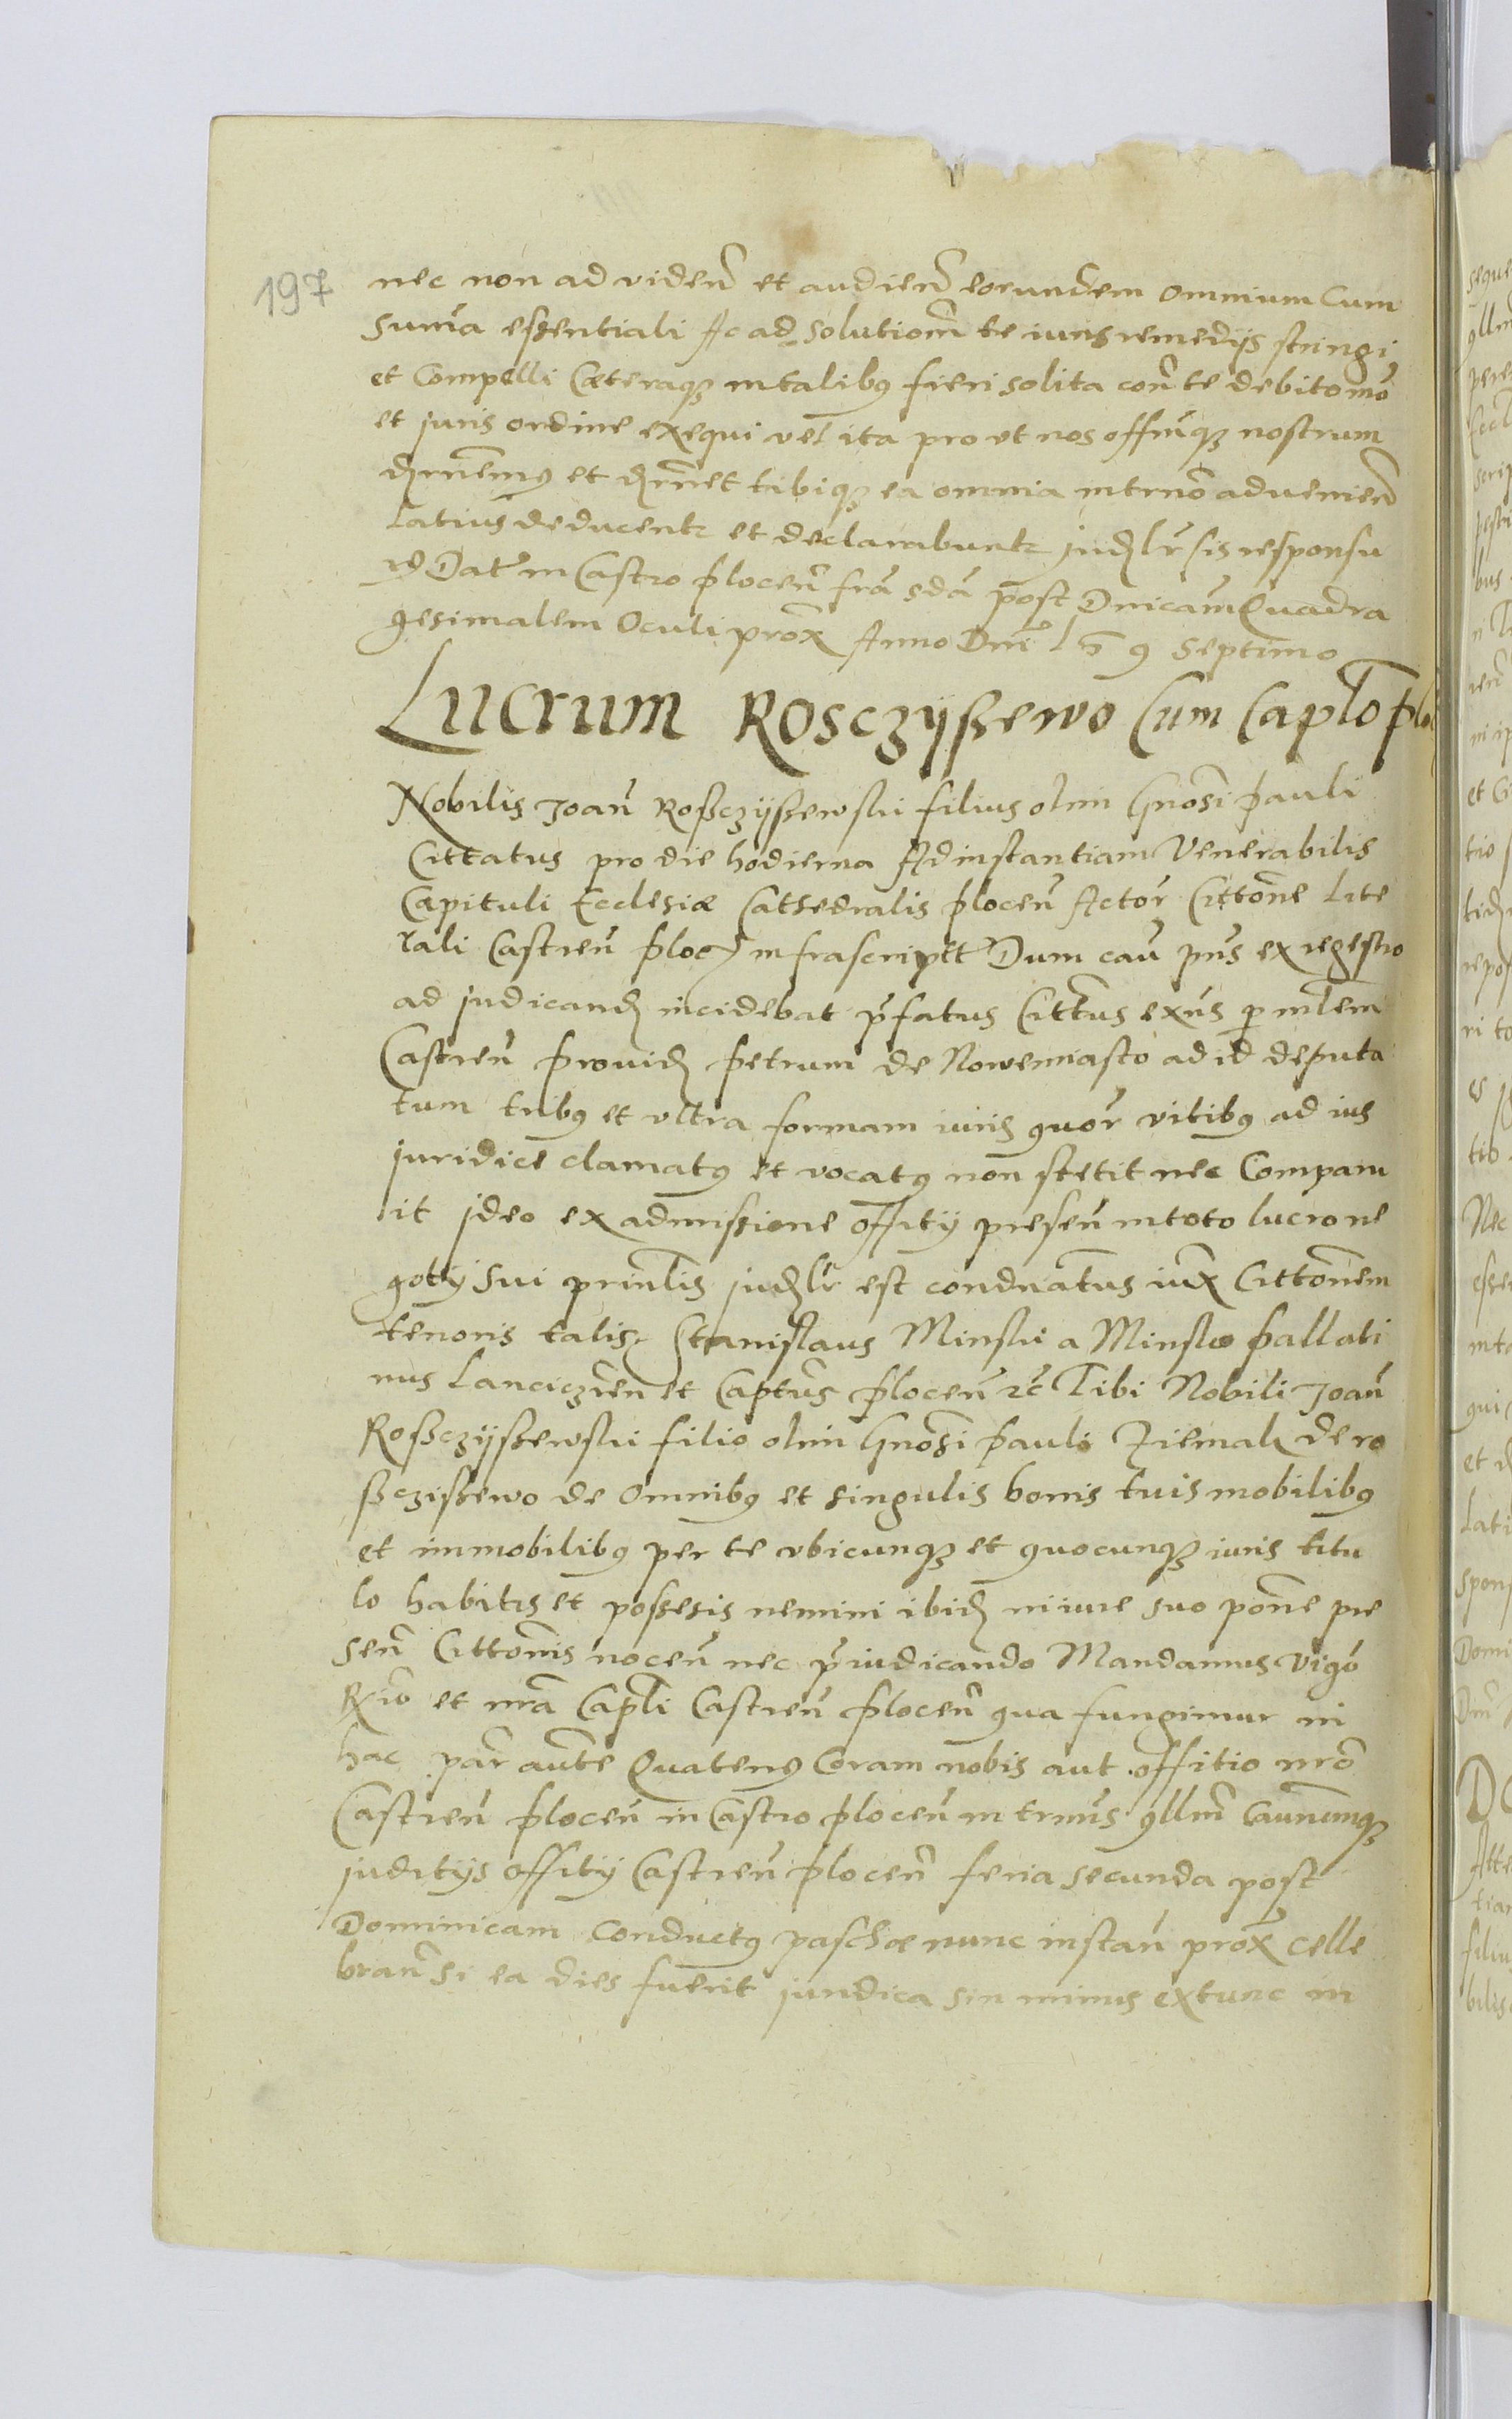 197
nec non ad videñ et audieñ eorundem omnium Cum
Suma essentiali Ac ad solutiom̃ te iuris remedijs stringi
et Compelli Cæteraq3 in talibq fieri solita coñ te debito mõ
et juris ordine exequi vel ita pro vt nos offmq3 nostrum
et tibiq3 ea omnia in trño advenieñ
Latius deducentr et declarabuntr judlr sis responsu
rq Dat in Castro plocen̄ fra sda post Dnicam Quadra
gesimalem Oculi prox Anno Dni septimo
Lucrum Rosczyssewo Cum Caplo plo
Nobilis Joan̄ Rossczyssewski filius olim Gnosi pauli
Cittatus pro die hodierna Ad instantiam Venerabilis
Capituli Ecclesiæ Cathedralis plocen̄ Actor Cittone Lite
rali Castren̄ ploc infrascriptt Dum cau pns ex regestro
ad judicand incidebat p̃fatus Cittus exns p mlem
Castren̄ prouid petrum de Nowemiasto ad id deputa
tum tribq et vltra formam iuris quor vicibq ad ius
juridice clamatq et vocatq non stetit nec Comparu
it jdeo ex admissione offity presen̄ in toto lucro ne
goty sui prinlis judlr est condnatus iux Cittonem
tenoris talis Stanislaus Minski a Minsko pallati
nus Lanciczien et Captus plocen̄ rc Tibi Nobili Joan̄
Rossczyssewski filio olim Gnosi pauli Ziemak de ro
ssczissewo de Omnibq et singulis bonis tuis mobilibq
et immobilibq per te vbicunq3 et quocunq3 iuris titu
lo habitis et possesis nemini ibid in iure suo pone pre
sen̄ Cittonis nocen̄ nec p̃iudicando Mandamus Vigo
Rio et nra Capli Castren̄ plocen̄ qua fungimur in
hac par aute Quatenq Coram nobis aut offitio nro
Castren̄ plocen̄ in Castro plocen̄ in trnis qllm Caunumq3
juditys offity Castren̄ plocen̄ feria secunda post
Dominicam Conductq paschæ nunc instan̄ prox celle
bran̄ si ea dies fuerit juridica sin minus extunc in